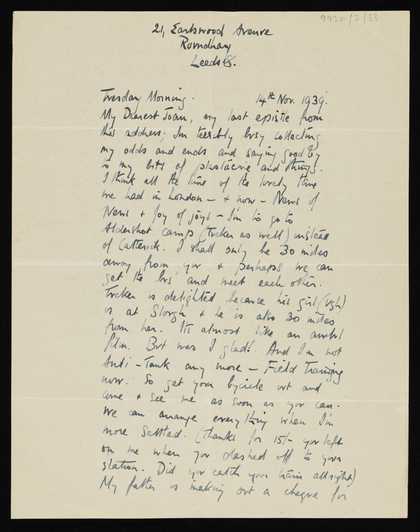 9920/2/33
21, Earlswood Avenue
Roundhay
Leeds 8.
Tuesday Morning.   14th Nov. 1939.
My Dearest Joan, my last epistle from
this address. Im terribly busy collecting
my odds and ends and saying goodby
to my bits of plastacine and things.
I think all the time of the lovely time
we had in London – & now – News of
News & Joy of joys! – Im to go to
Aldershot camp (Tucker as well) instead
of Catterick. I shall only be 30 miles
away from you & perhaps we can
get the bus and meet each other.
Tucker is delighted because his girl (Ugh)
is at Slough & he is also 30 miles
from her. Its almost like an awful
film. But was I glad! And I'm not
Anti-Tank any more – Field Training
now. So get your bycicle out and
come & see me as soon as you can.
We can arrange everything when I'm
more settled. (Thanks for 15/- you left
on me when you dashed off to your
station. Did you catch your train allright)
My father is making out a cheque for